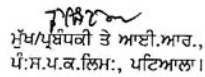 ਮੁੱਖ/ਪ੍ਰਬੰਧਕੀ ਤੇ ਆਈ.ਆਰ.,
ਪੰ:ਸ.ਪ.ਕ.ਲਿਮ:, ਪਟਿਆਲਾ।